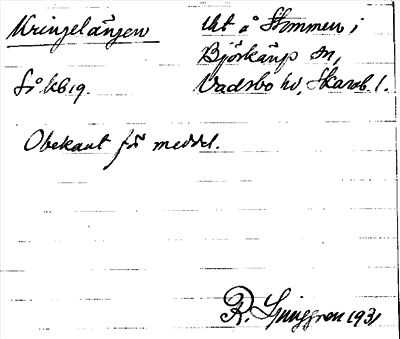 Kringelängen
Ut å Stommen i
Björkäng sn,
Så kb 19.
Vadsbo hd, Skarab. l.
Obekant för meddel.
R. Ljunggren 1931